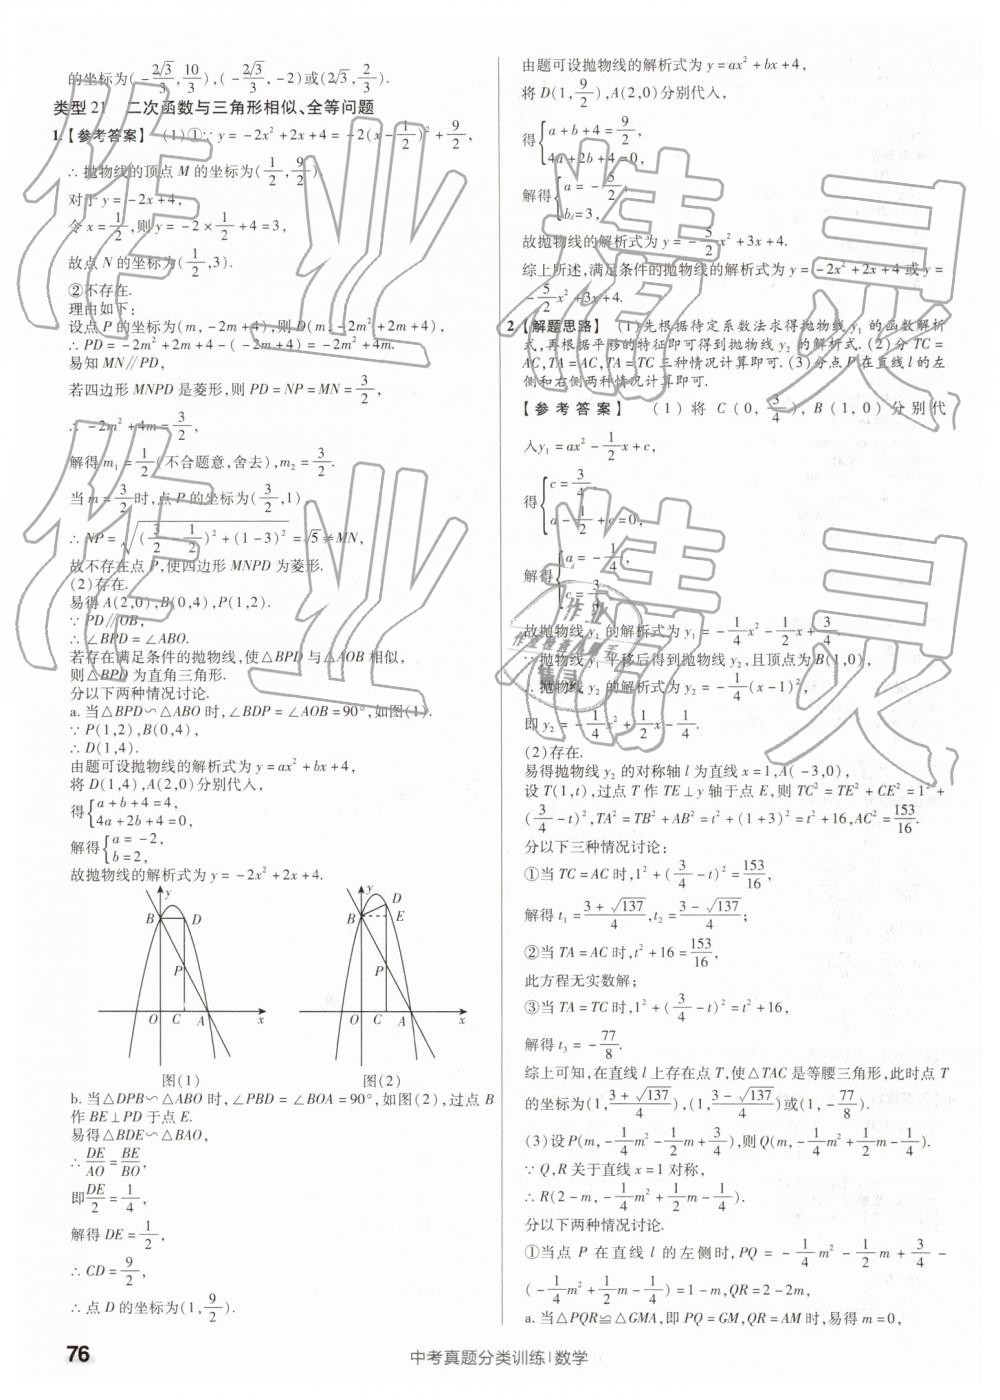 的坐标为(-2√3/3,10/3),(-2√3/3,-2)或(2√3,2/3).
类型21 二次函数与三角形相似、全等问题
1.【参考答案】 (1)①∵y=-2x²+2x+4=-2(x-1/2)²+9/2,
∴抛物线的顶点M的坐标为(1/2,9/2).
对于y=-2x+4,
令x=1/2,则y=-2×1/2+4=3,
故点N的坐标为(1/2,3).
②不存在.
理由如下:
设点P的坐标为(m,-2m+4),则D(m,-2m²+2m+4),
∴PD=-2m²+2m+4-(-2m+4)=-2m²+4m.
易知MN∥PD,
若四边形MNPD是菱形,则PD=NP=MN=3/2,
∴-2m²+4m=3/2,
解得m₁=1/2(不合题意,舍去),m₂=3/2.
当m=3/2时,点P的坐标为(3/2,1),
∴NP=√((3/2-1/2)²+(1-3)²)=√5≠MN,
故不存在点P,使四边形MNPD为菱形.
(2)存在.
易得A(2,0),B(0,4),P(1,2).
∵PD∥OB,
∴∠BPD=∠ABO.
若存在满足条件的抛物线,使△BPD与△AOB相似,
则△BPD为直角三角形.
分以下两种情况讨论.
a.当△BPD∽△ABO时,∠BDP=∠AOB=90°,如图(1).
∵P(1,2),B(0,4),
∴D(1,4).
由题可设抛物线的解析式为y=ax²+bx+4,
将D(1,4),A(2,0)分别代入,
得{a+b+4=4,
4a+2b+4=0,
解得{a=-2,
b=2,
故抛物线的解析式为y=-2x²+2x+4.
y
B D
P
O C A x
图(1)
y
D
B E
P
O C A x
图(2)
b.当△DPB∽△ABO时,∠PBD=∠BOA=90°,如图(2),过点B
作BE⊥PD于点E.
易得△BDE∽△BAO,
∴DE/AO=BE/BO,
即DE/2=1/4,
解得DE=1/2,
∴CD=9/2,
∴点D的坐标为(1,9/2).
由题可设抛物线的解析式为y=ax²+bx+4,
将D(1,9/2),A(2,0)分别代入,
得{a+b+4=9/2,
4a+2b+4=0,
解得{a=-5/2,
b=3,
故抛物线的解析式为y=-5/2x²+3x+4.
综上所述,满足条件的抛物线的解析式为y=-2x²+2x+4或y=
-5/2x²+3x+4.
2.【解题思路】 (1)先根据待定系数法求得抛物线y₁的函数解析
式,再根据平移的特征即可得到抛物线y₂的解析式.(2)分TC=
AC,TA=AC,TA=TC三种情况计算即可.(3)分点P在直线l的左
侧和右侧两种情况计算即可.
【参考答案】 (1)将C(0,3/4),B(1,0)分别代
入y₁=ax²-1/2x+c,
得{c=3/4,
a-1/2+c=0,
解得{a=-1/4,
c=3/4,
故抛物线y₁的解析式为y₁=-1/4x²-1/2x+3/4.
∵抛物线y₁平移后得到抛物线y₂,且顶点为B(1,0),
∴抛物线y₂的解析式为y₂=-1/4(x-1)²,
即y₂=-1/4x²+1/2x-1/4.
(2)存在.
易得抛物线y₂的对称轴l为直线x=1,A(-3,0),
设T(1,t),过点T作TE⊥y轴于点E,则TC²=TE²+CE²=1²+
(3/4-t)²,TA²=TB²+AB²=t²+(1+3)²=t²+16,AC²=153/16.
分以下三种情况讨论:
①当TC=AC时,1²+(3/4-t)²=153/16,
解得t₁=(3+√137)/4,t₂=(3-√137)/4;
②当TA=AC时,t²+16=153/16,
此方程无实数解;
③当TA=TC时,1²+(3/4-t)²=t²+16,
解得t₃=-77/8.
综上可知,在直线l上存在点T,使△TAC是等腰三角形,此时点T
的坐标为(1,(3+√137)/4),(1,(3-√137)/4)或(1,-77/8).
(3)设P(m,-1/4m²-1/2m+3/4),则Q(m,-1/4m²+1/2m-1/4).
∵Q,R关于直线x=1对称,
∴R(2-m,-1/4m²+1/2m-1/4).
分以下两种情况讨论.
①当点P在直线l的左侧时,PQ=-1/4m²-1/2m+3/4-
(-1/4m²+1/2m-1/4)=1-m,QR=2-2m,
a.当△PQR≌△GMA,即PQ=GM,QR=AM时,易得m=0,
76
中考真题分类训练|数学
作业精灵
作业精灵
作业
作业检查小帮手
精灵